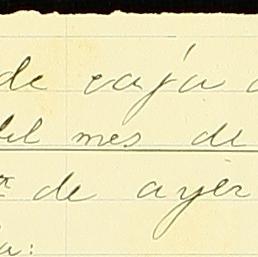 de caja
del mes de
de ayer